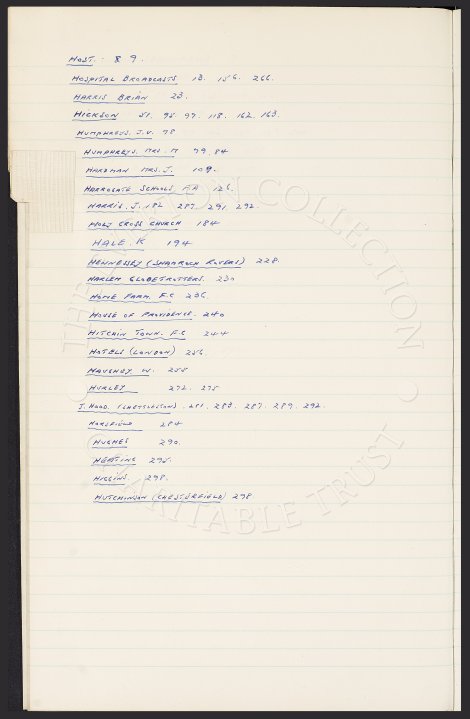 HOST. : 89.
HOSPITAL BROADCASTS 13. 156. 266.
HARRIS BRIAN 23.
HICKSON 51. 95 97. 118. 162. 163.
HUMPHREYS. J.V. 78
HUMPHREYS. MRS. M 79. 84
HARDMAN MRS. J. 109.
HARROGATE SCHOOLS F.A 126.
HARRIS. J. 182 287. 291. 292.
HOLY CROSS CHURCH 184
HALE. K 194
HENNESSEY (SHAMROCK ROVERS) 228.
HARLEM GLOBETROTTERS. 230
HOME FARM. F.C 236
HOUSE OF PROVIDENCE. 240
HITCHIN TOWN. F.C 244
HOTELS (LONDON) 256.
HAUGHEY W. 258
HURLEY 272. 275
J. HOOD. 281. 283. 287. 289. 292.
HORSFIELD 284
HUGHES 290.
HEATING 295.
HIGGINS. 298.
HUTCHINSON (CHESTERFIELD) 298
COLLECTION
CHARITABLE TRUST